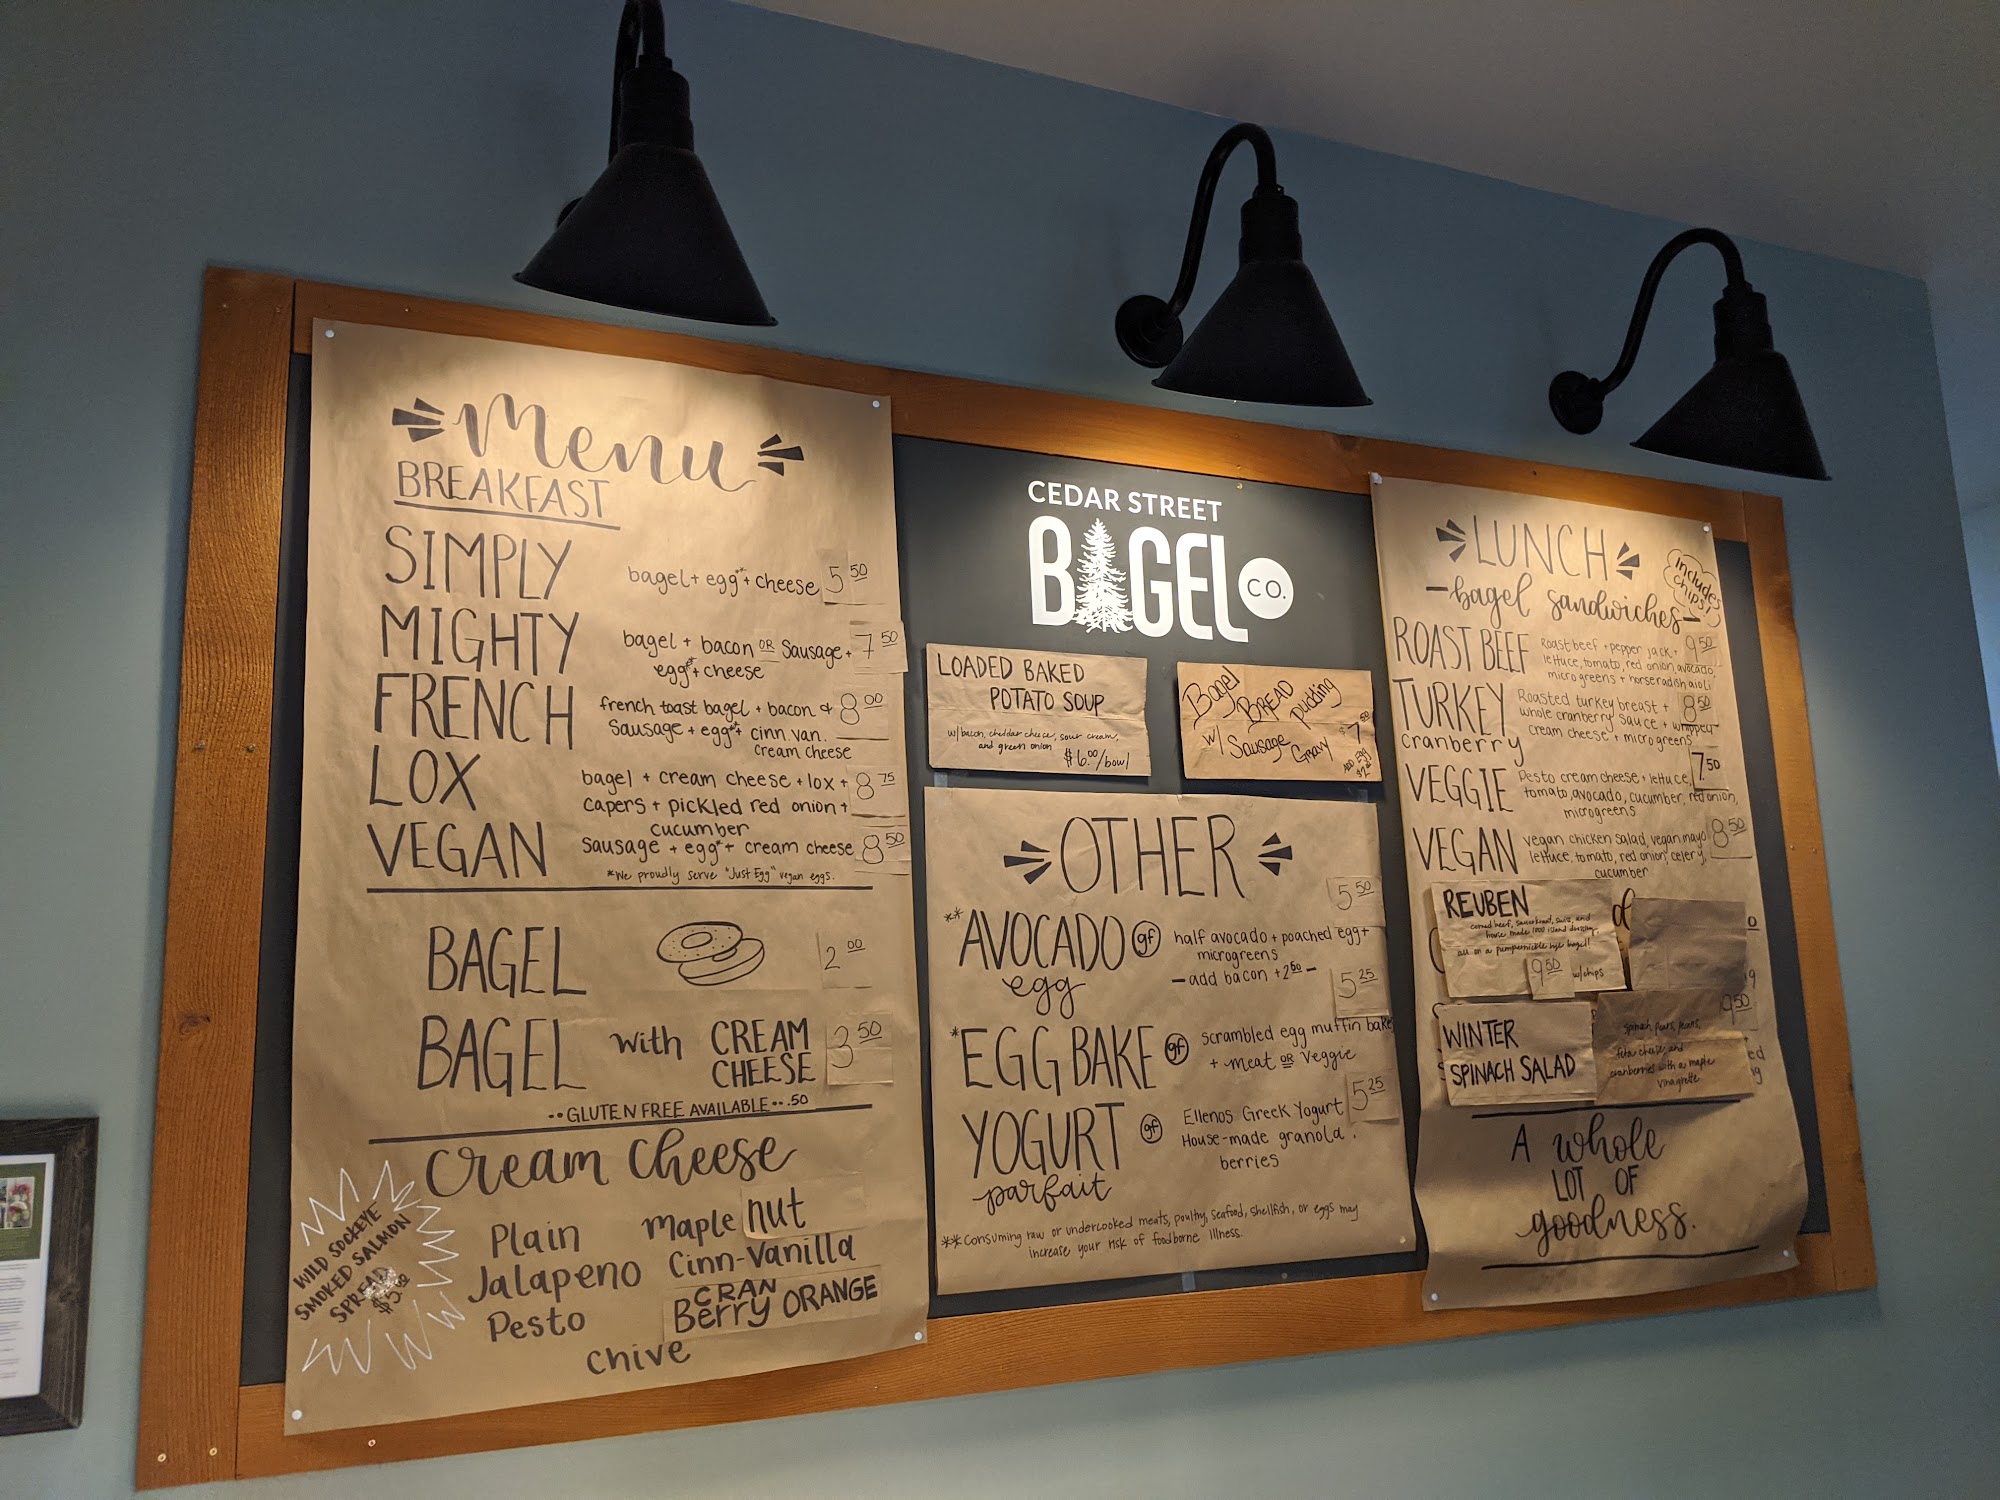 Menu
BREAKFAST
SIMPLY
bagel + egg** + cheese 5 50
MIGHTY
bagel + bacon OR Sausage + 7 50
egg** + cheese
FRENCH
french toast bagel + bacon & 8 00
Sausage + egg** + cinn. van.
cream cheese
LOX
bagel + cream cheese + lox + 8 75
capers + pickled red onion +
cucumber
VEGAN
Sausage + egg* + cream cheese 8 50
*We proudly serve "Just Egg" vegan eggs.
BAGEL 2 00
BAGEL with CREAM CHEESE 3 50
-- GLUTEN FREE AVAILABLE -- .50
Cream Cheese
Plain
Jalapeno
Pesto
Maple nut
Cinn-Vanilla
CRAN
Berry ORANGE
chive
WILD SOCKEYE
SMOKED SALMON
SPREAD
$5.00
CEDAR STREET
BAGEL CO.
LOADED BAKED
POTATO SOUP
w/ bacon, cheddar cheese, sour cream,
and green onion
$6.00/bowl
Bagel
BREAD
Pudding
w/ Sausage
Gravy
$7 50
ADD EGG
OTHER
5 50
**AVOCADO gf
egg
half avocado + poached egg +
microgreens
- add bacon + 2 00 -
5 25
*EGG BAKE gf
scrambled egg muffin bake
+ meat OR veggie
5 25
YOGURT gf
parfait
Ellenos Greek Yogurt
House-made granola
berries
** Consuming raw or undercooked meats, poultry, seafood, shellfish, or eggs may
increase your risk of foodborne illness.
LUNCH
- bagel sandwiches -
includes
chips
ROAST BEEF
Roast beef + pepper jack + 9 50
lettuce, tomato, red onion, avocado,
microgreens + horseradish aioli
TURKEY
cranberry
Roasted turkey breast + 8 50
whole cranberry sauce + whipped
cream cheese + microgreens
VEGGIE
Pesto cream cheese + lettuce, 7.50
tomato, avocado, cucumber, red onion,
microgreens
VEGAN
vegan chicken salad, vegan mayo 8 50
lettuce, tomato, red onion, celery,
cucumber
REUBEN
corned beef, sauerkraut, swiss, and
house made 1000 island dressing,
all on a pumpernickle rye bagel!
9 50 w/chips
WINTER
SPINACH SALAD
9 50
feta cheese, and
cranberries with a maple
vinaigrette
A whole
LOT OF
goodness.